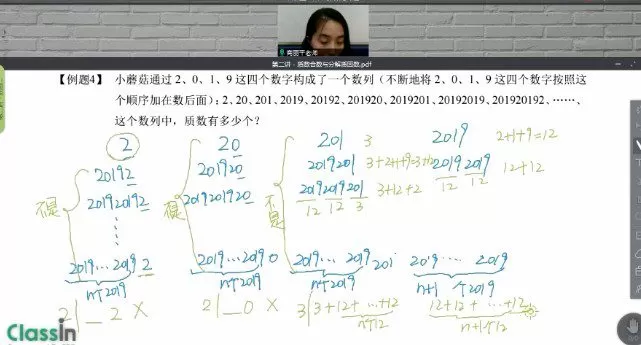 第二讲-质数合数与分解质因数.pdf
【例题4】 小蘑菇通过 2、0、1、9 这四个数字构成了一个数列（不断地将 2、0、1、9 这四个数字按照这
个顺序加在数后面）：2、20、201、2019、20192、201920、2019201、20192019、201920192、……、
这个数列中，质数有多少个？
2 20 201 3 2019 2+1+9=12
20192 201920 2019201 3+2+1+9=3+12 2019 2019 12+12
12 12
201920192 2019201920 2019 2019 201 3+12+2
12 12 3
不是 不是 不是
2019…2019 2 2019…2019 0 2019… 2019 201 2019 … 2019
n个2019 n个2019 n个2019 n+1 个2019
2 | _ 2 × 2 | _ 0 × 3 | 3+12+ …+12 12+12+ …+12
n个12 n+1个12
Classin